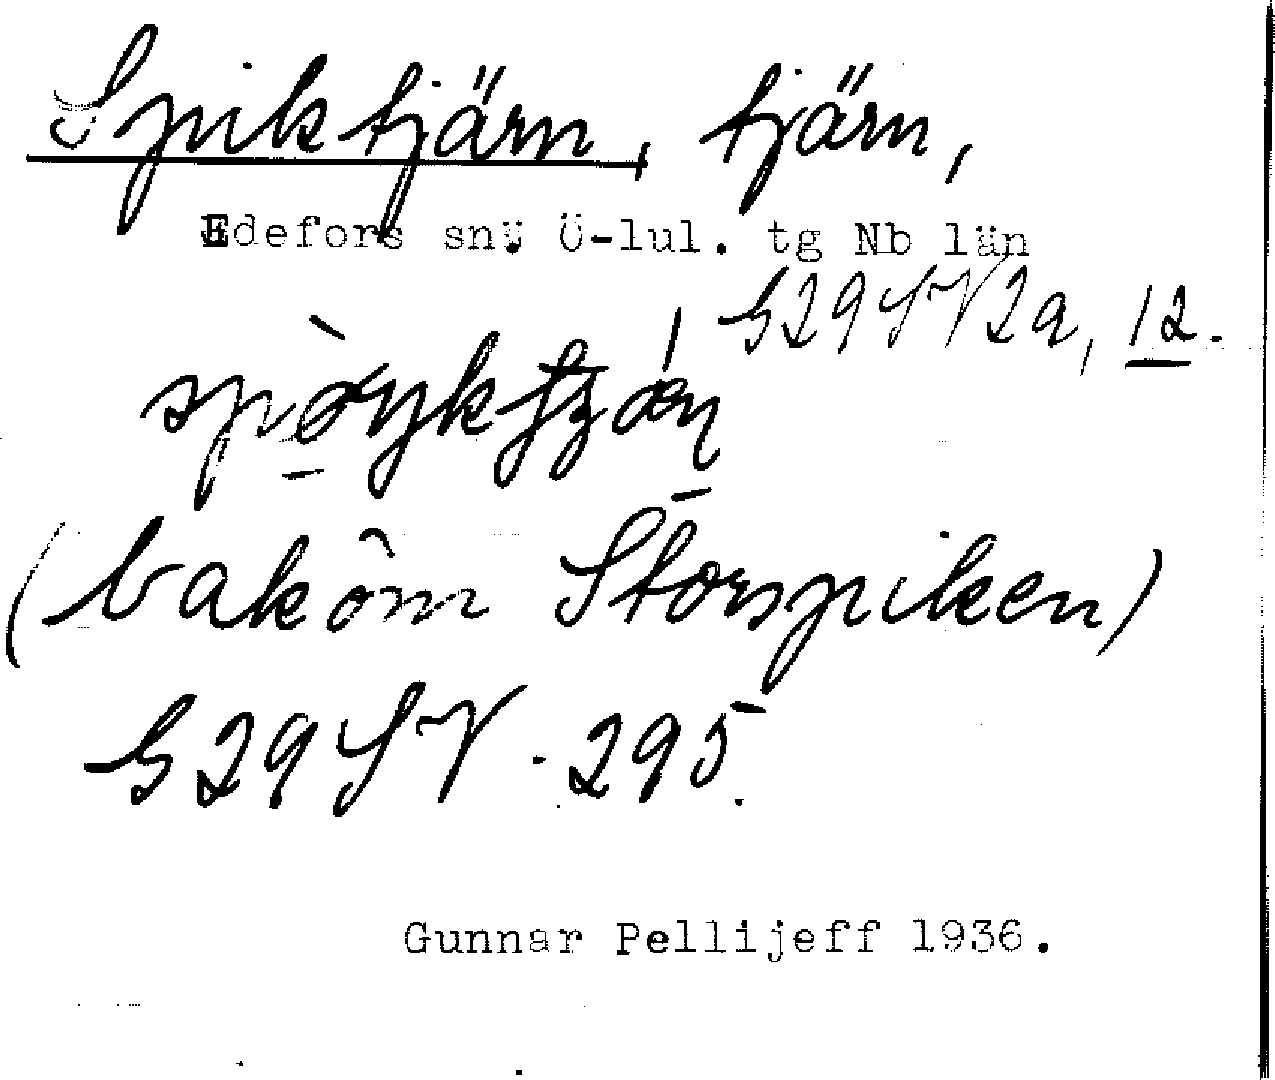 Spiktjärn, tjärn,
Edefors sn, Ö-lul. tg Nb län
G29SV2a, 12.
(bakôm Storspiken)
G29SV. 295.
Gunnar Pellijeff 1936.